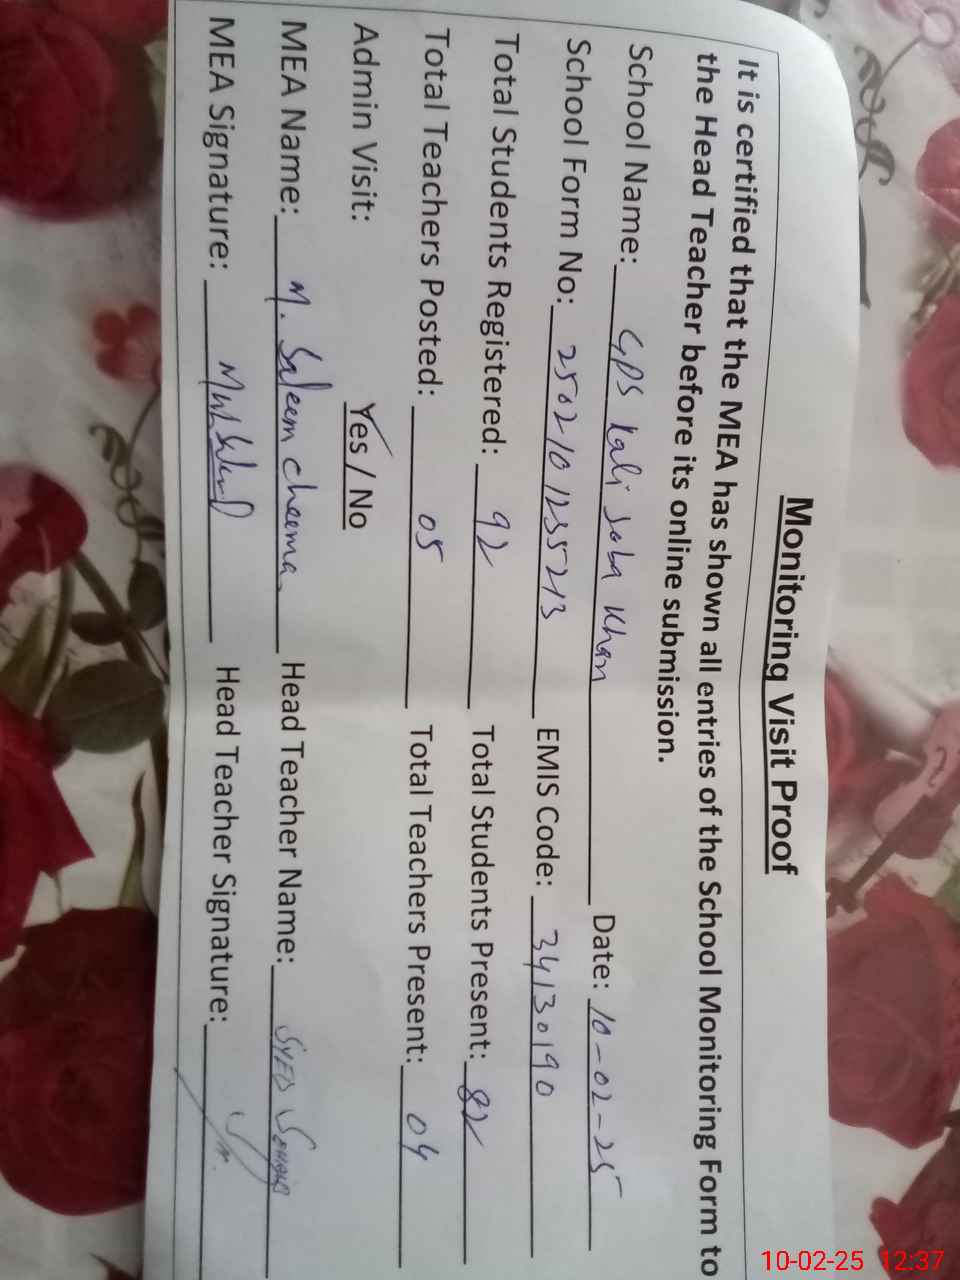 Monitoring Visit Proof
It is certified that the MEA has shown all entries of the School Monitoring Form to
the Head Teacher before its online submission.
School Name: GPS Kali Soba Khan Date: 10-02-25
School Form No: 250210 1255213 EMIS Code: 34130190
Total Students Registered: 92 Total Students Present: 82
Total Teachers Posted: 05 Total Teachers Present: 04
Admin Visit: Yes / No
MEA Name: M. Saleem Cheema Head Teacher Name: SYED
MEA Signature: Head Teacher Signature:
10-02-25 12:37